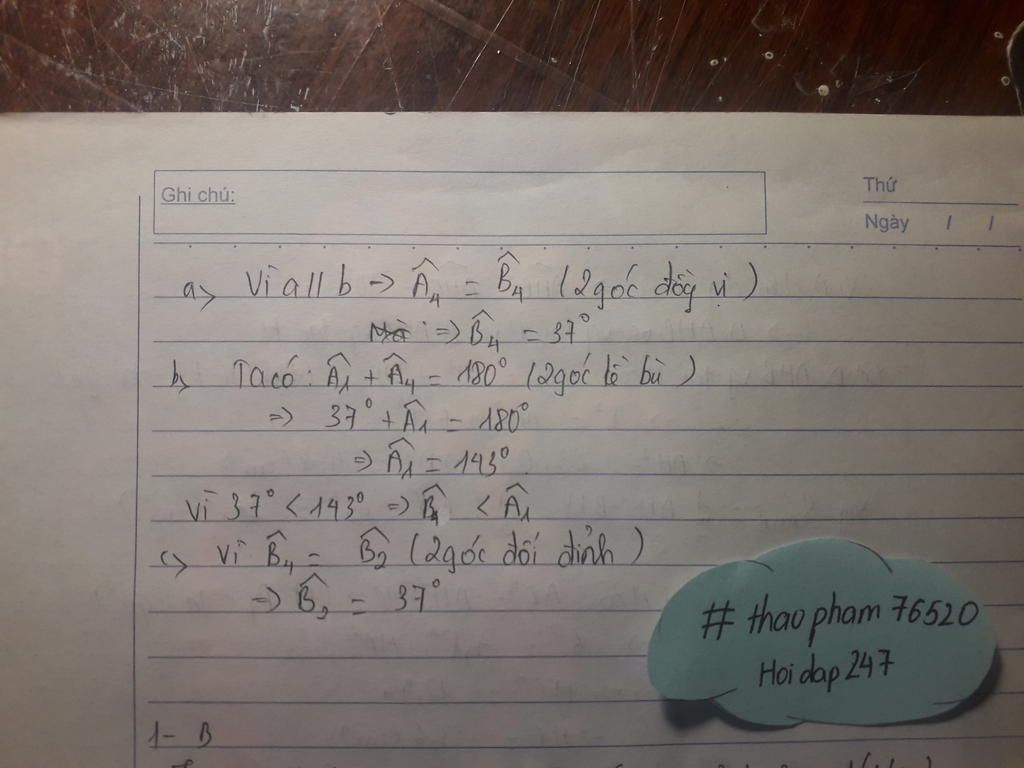 Ghi chú:
Thứ
Ngày / /
a> Vì a//b -> Â₄ = B̂₄ (2 góc đồg vị)
=> B̂₄ = 37°
b> Ta có: Â₁ + Â₄ = 180° (2 góc kề bù)
=> 37° + Â₁ = 180°
=> Â₁ = 143°
Vì 37° < 143° => B̂₄ < Â₁
c> Vì B̂₄ = B̂₂ (2 góc đối đỉnh)
=> B̂₂ = 37°
# thao pham 76520
Hoi dap 247
1 - B